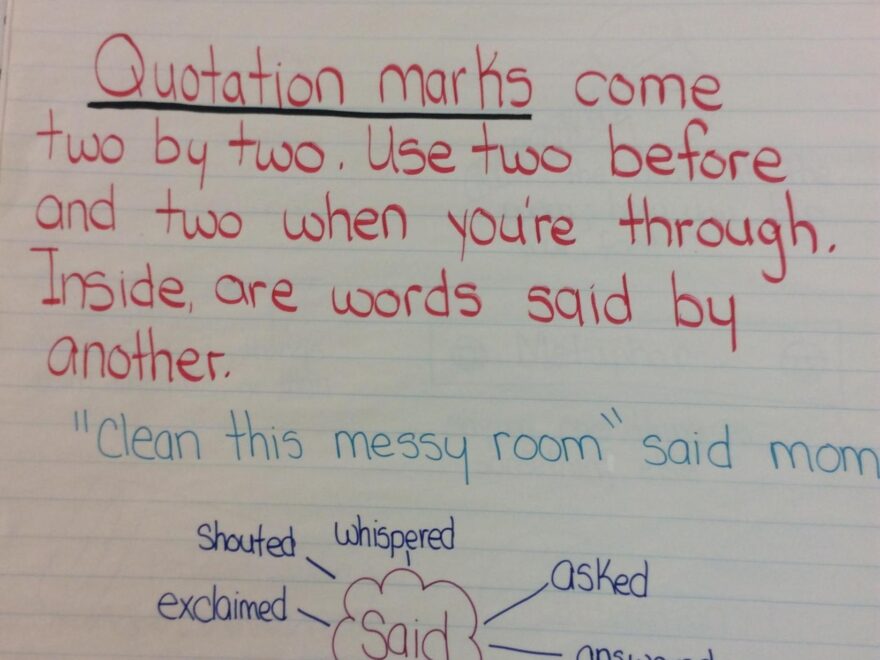 Quotation marks come
two by two. Use two before
and two when you're through.
Inside, are words said by
another.
"Clean this messy room" said mom
shouted whispered
asked
exclaimed
Said
answered